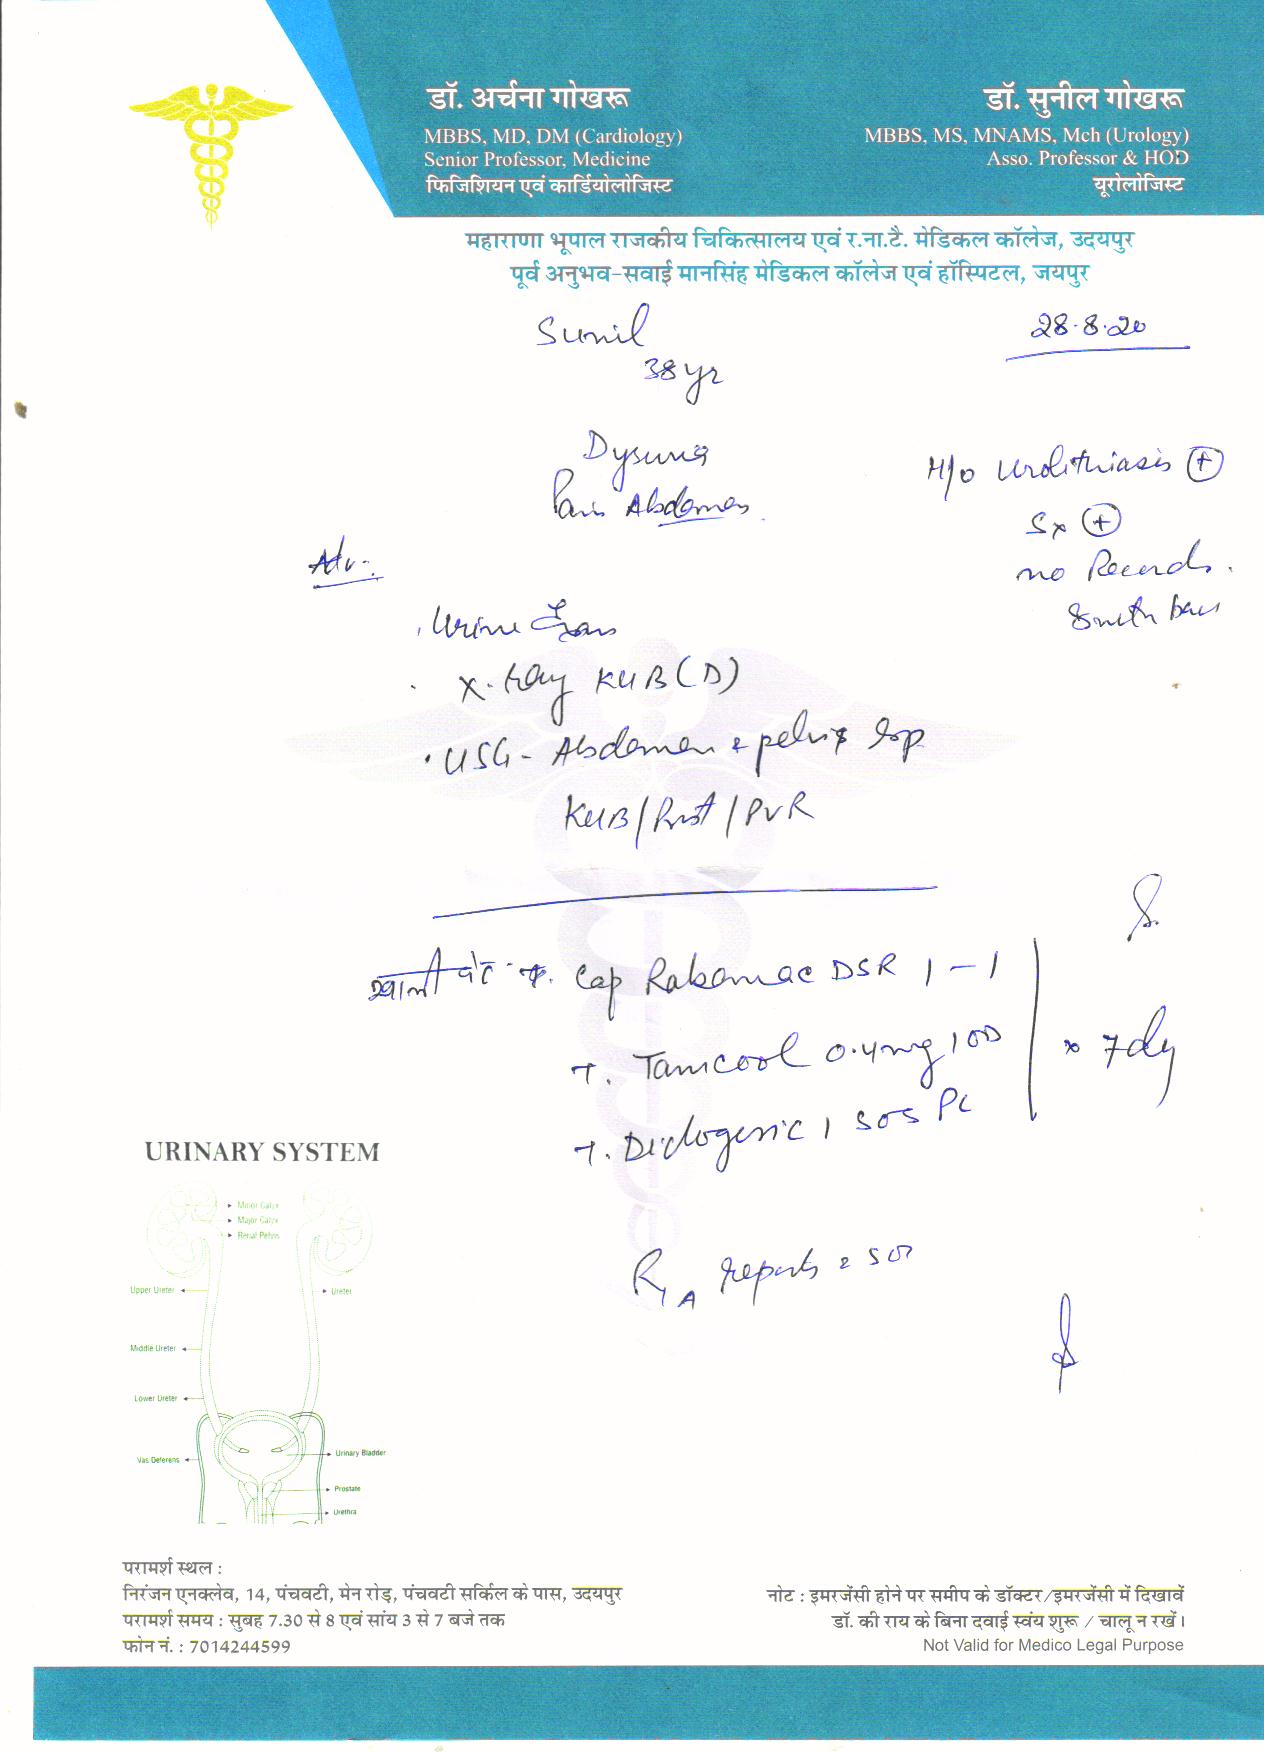 डॉ. अर्चना गोखरू
MBBS, MD, DM (Cardiology)
Senior Professor, Medicine
फिजिशियन एवं कार्डियोलोजिस्ट
डॉ. सुनील गोखरू
MBBS, MS, MNAMS, Mch (Urology)
Asso. Professor & HOD
यूरोलोजिस्ट
महाराणा भूपाल राजकीय चिकित्सालय एवं र.ना.टै. मेडिकल कॉलेज, उदयपुर
पूर्व अनुभव-सवाई मानसिंह मेडिकल कॉलेज एवं हॉस्पिटल, जयपुर
Sunil
28.8.20
38 yr
Dysuria
Pain Abdomen
H/o Urolithiasis (+)
Sx (+)
no Records.
Adv:
. Urine
. X-Ray KUB (D)
. USG - Abdomen & pelvis
KUB / Prost / PVR
खाली पेट Cap Rabomac DSR 1 - 1
T. Tamcool 0.4mg 1 OD
x 7 dy
T. Diclogesic 1 SOS PC
R/A reports & SOS
URINARY SYSTEM
Minor Calyx
Major Calyx
Renal Pelvis
Upper Ureter
Ureter
Middle Ureter
Lower Ureter
Vas Deferens
Urinary Bladder
Prostate
Urethra
परामर्श स्थल :
निरंजन एनक्लेव, 14, पंचवटी, मेन रोड़, पंचवटी सर्किल के पास, उदयपुर
परामर्श समय : सुबह 7.30 से 8 एवं सांय 3 से 7 बजे तक
फोन नं. : 7014244599
नोट : इमरजेंसी होने पर समीप के डॉक्टर/इमरजेंसी में दिखावें
डॉ. की राय के बिना दवाई स्वंय शुरू / चालू न रखें।
Not Valid for Medico Legal Purpose